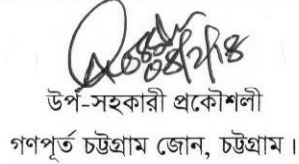 ০৪/২/১৪
উপ-সহকারী প্রকৌশলী
গণপূর্ত চট্টগ্রাম জোন, চট্টগ্রাম।